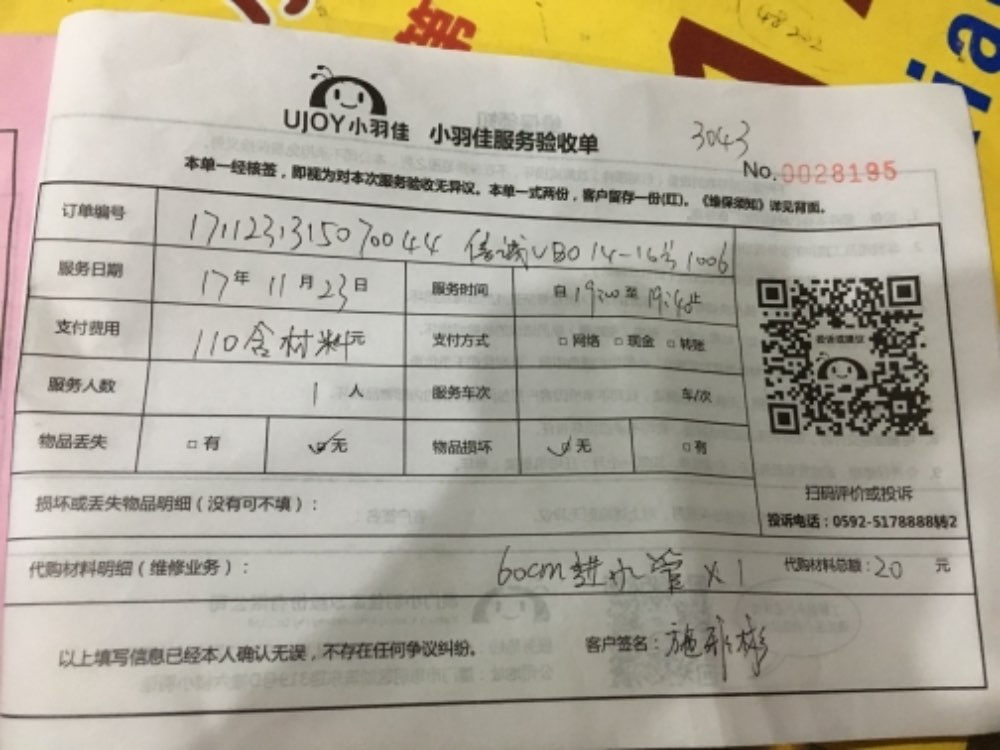 48202
UJOY小羽佳 小羽佳服务验收单
3043
No.0028195
本单一经核签，即视为对本次服务验收无异议。本单一式两份，客户留存一份(红)。《维保须知》详见背面。
订单编号 171123131507044 信诚UBO 14-16号1006
服务日期 17年11月23日 服务时间 自19:00至19:40止
支付费用 110含材料元 支付方式 □网络 □现金 □转账
服务人数 1人 服务车次 车/次
物品丢失 □有 ☑无 物品损坏 ☑无 □有
损坏或丢失物品明细（没有可不填）：
扫码评价或投诉
投诉电话：0592-5178888转2
代购材料明细（维修业务）： 60cm进水管 X 1 代购材料总额：20 元
以上填写信息已经本人确认无误，不存在任何争议纠纷。 客户签名：